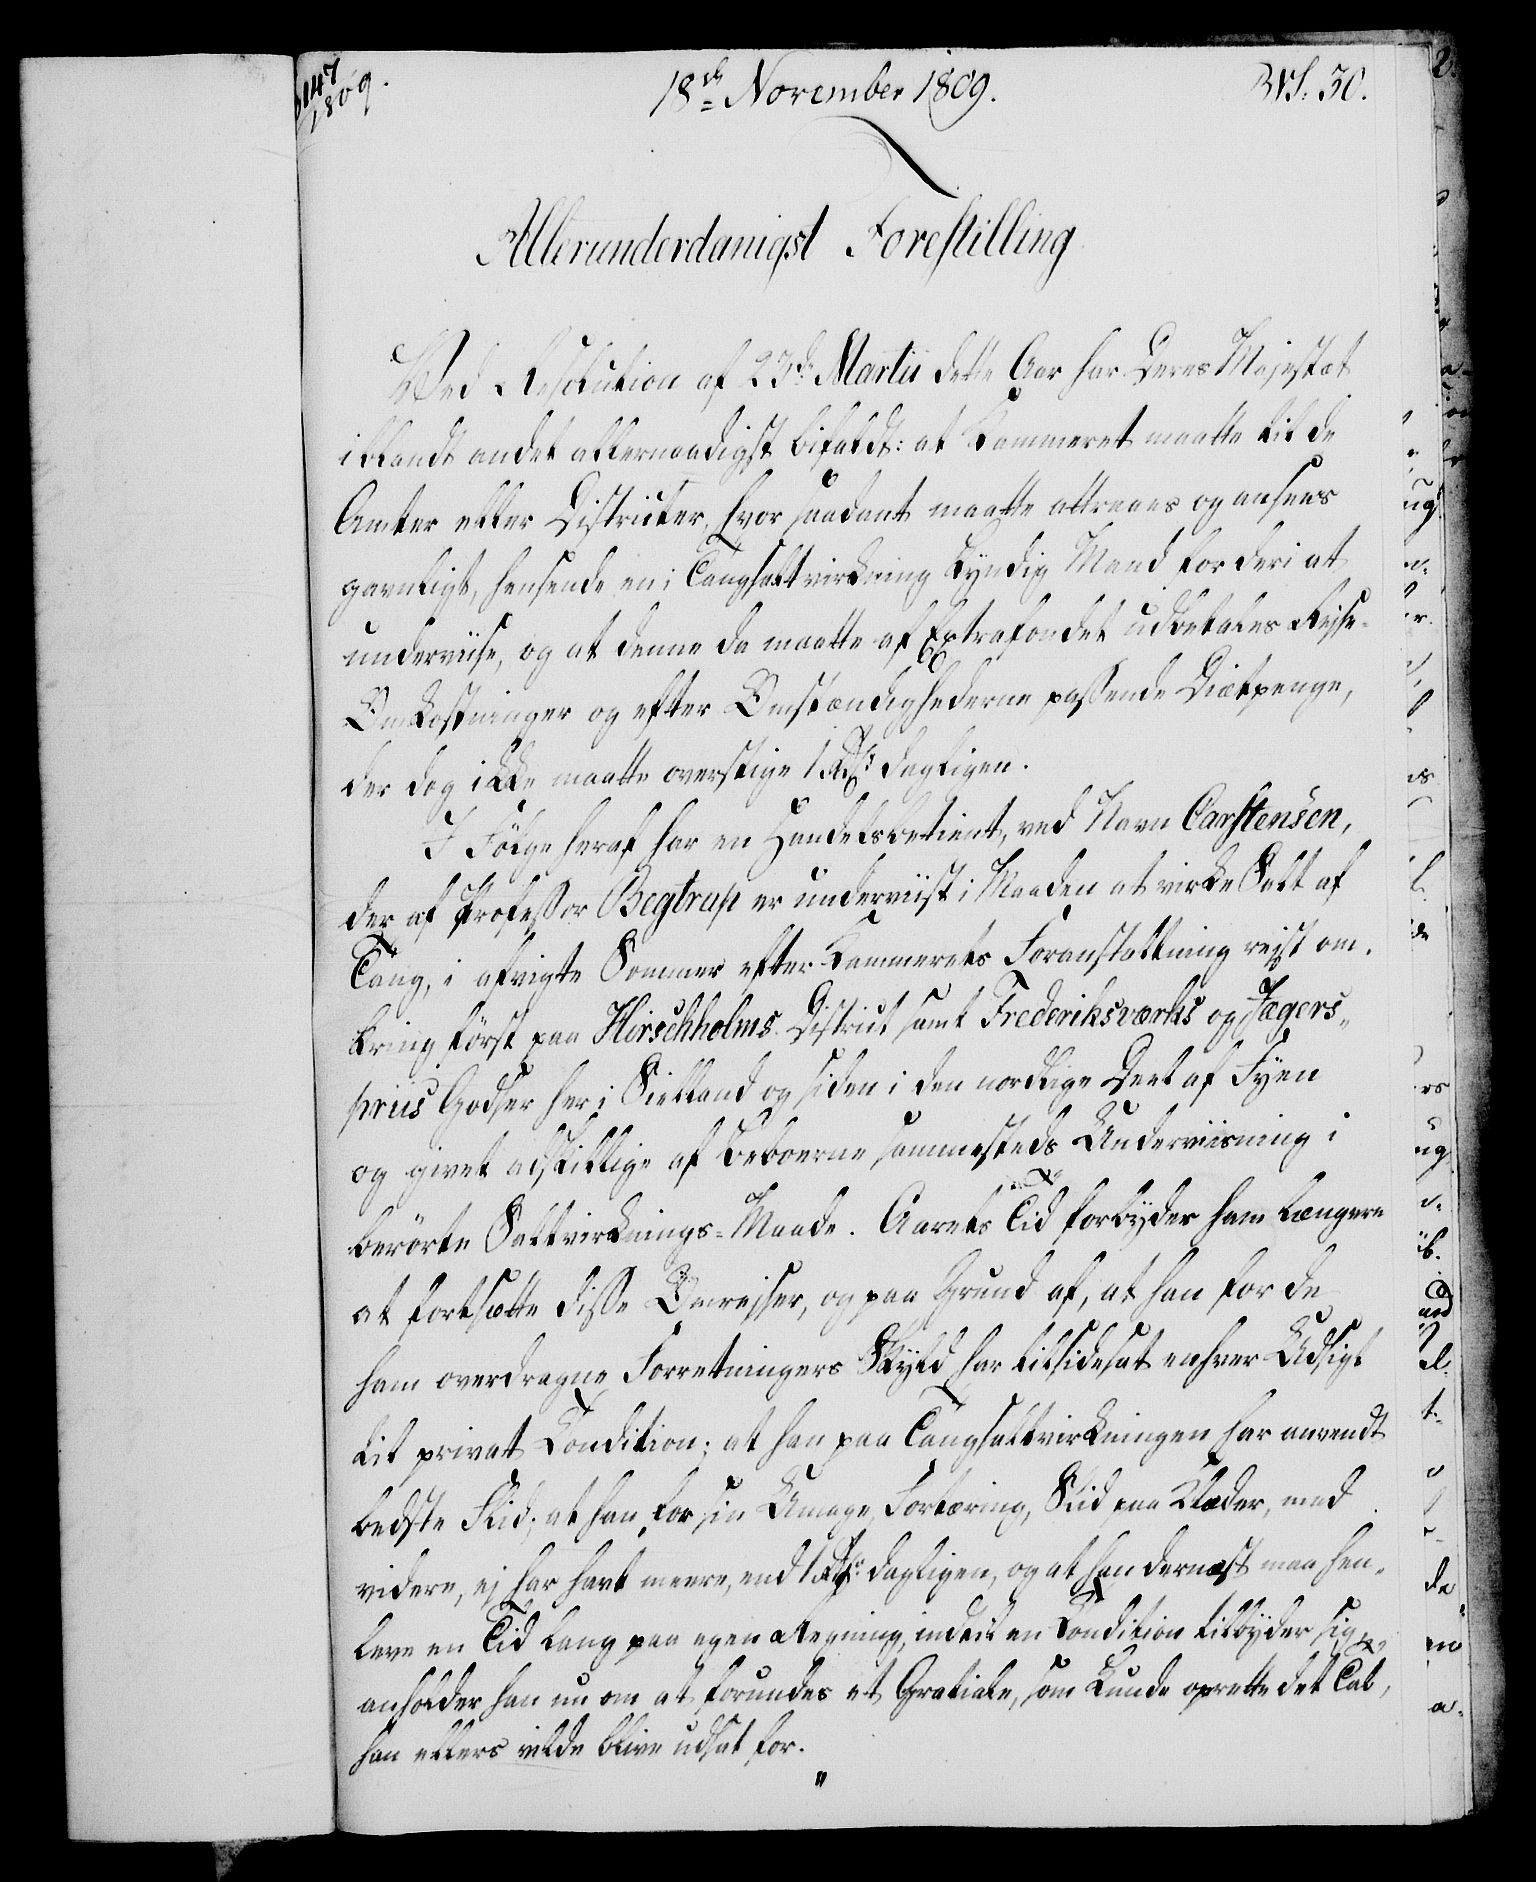 147
1809.
18de November 1809.
No. 30.
Allerunderdanigst Forestilling
Ved Resolution af 23de Martii dette Aar har Deres Majestæt
iblandt andet allernaadigst bifaldt: at Kammeret maatte til de
Amter eller Districter, hvor saadant maatte attraaes og ansees
gavnligt, hensende en i Tangsaltvirkning kyndig Mand for deri at
underviise, og at denne da maatte af Extrafondet udbetales Reise-
Omkostninger og efter Omstændighederne passende Diætpenge,
der dog ikke maatte overstige 1 Rdlr. dagligen.
I Følge heraf har en Handelsbetient, ved Navn Carstensen,
der af Professor Begtrup er underviist i Maaden at virke Salt af
Tang, i afvigte Sommer efter Kammerets Foranstaltning reist om-
kring først paa Hirschholms District samt Frederiksværks og Jægers-
priis Godser her i Sielland og siden i den nordlige Deel af Fyen
og givet adskillige af Beboerne sammesteds Underviisning i
berørte Saltvirknings-Maade. Aarets Tid forbyder ham længere
at fortsætte disse Omreiser, og paa Grund af, at han for de
ham overdragne Forretningers Skyld har tilsidesat enhver Udsigt
til privat Condition; at han paa Tangsaltvirkningen har anvendt
bedste Flid; at han for sin Umage, Fortæring, Slid paa Klæder, med
videre, ej har havt meere, end 1 Rdlr. dagligen, og at han dernæst maa hen-
leve en Tid lang paa egen Regning, indtil en Condition tilbyder sig,
anholder han nu om at forundes et Gratiale, som kunde oprette det Tab,
han ellers vilde blive udsat for.
"